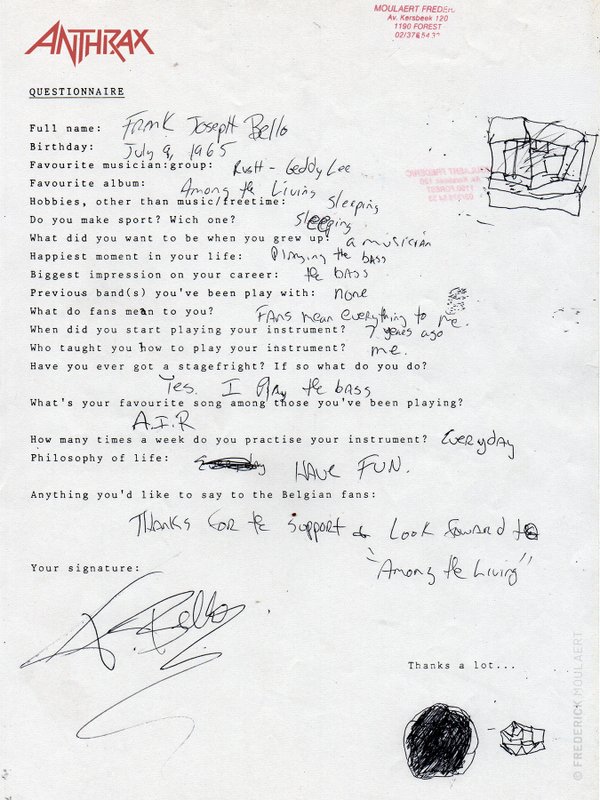 MOULAERT FREDER.
Av. Kersbeek 120
1190 FOREST
02/376 54 32
ANTHRAX
QUESTIONNAIRE
Full name: FRANK JOSEPH Bello
Birthday: July 9, 1965
Favourite musician:group: RUSH - Geddy Lee
Favourite album: Among the Living
MOULAERT FREDERIC
1190 FOREST
Hobbies, other than music/freetime: Sleeping
Do you make sport? Wich one? Sleeping
What did you want to be when you grew up: a musician
Happiest moment in your life: Playing the bass
Biggest impression on your career: the bass
Previous band(s) you've been play with: none
What do fans mean to you? FANS mean everything to me.
When did you start playing your instrument? 7 years ago
Who taught you how to play your instrument? me.
Have you ever got a stagefright? If so what do you do?
Yes. I Play the bass
What's your favourite song among those you've been playing?
A.I.R
How many times a week do you practise your instrument? Everyday
Philosophy of life: HAVE FUN.
Anything you'd like to say to the Belgian fans:
THANKS for the support & Look foward to
"Among the Living"
Your signature:
F. Bello
Thanks a lot...
© FREDERICK MOULAERT